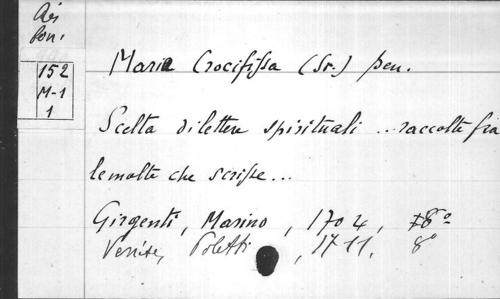 152
M-1
1
Maria Crocifissa (Sr.) ben.
Scelta di lettere spirituali ... raccolte fra
le molte che scrisse...
Girgenti, Marino, 1704, 8º
Venise, Poletti, 1711. 8º